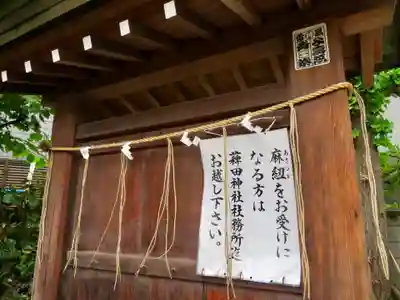 麻紐をお受けに
あさひも
なる方は
蒔田神社社務所迄
お越し下さい。